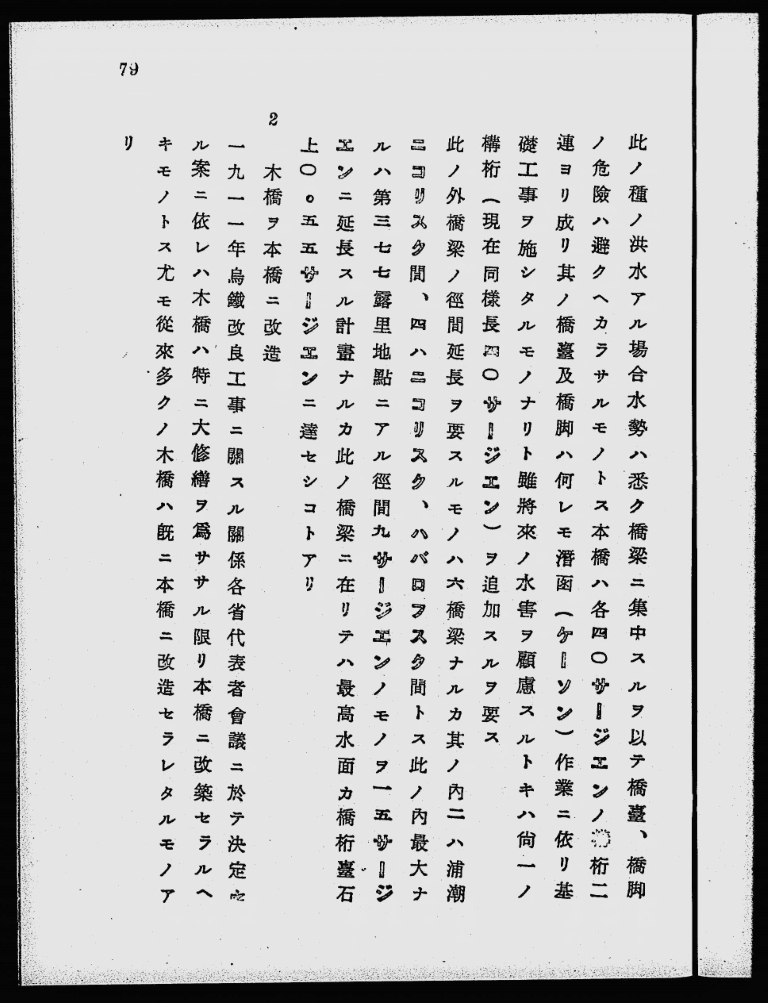 79
此ノ種ノ洪水アル場合水勢ハ悉ク橋梁ニ集中スルヲ以テ橋臺、橋脚
ノ危險ハ避クヘカラサルモノトス本橋ハ各四〇サージエンノ桁二
連ヨリ成リ其ノ橋臺及橋脚ハ何レモ潛函（ケーソン）作業ニ依リ基
礎工事ヲ施シタルモノナリト雖將來ノ水害ヲ顧慮スルトキハ尙一ノ
構桁（現在同様長四〇サージエン）ヲ追加スルヲ要ス
此ノ外橋梁ノ徑間延長ヲ要スルモノハ六橋梁ナルカ其ノ內二ハ浦潮
ニコリスク間、四ハニコリスク、ハバロフスク間トス此ノ內最大ナ
ルハ第三七七露里地點ニアル徑間九サージエンノモノヲ一五サージ
エンニ延長スル計畫ナルカ此ノ橋梁ニ在リテハ最高水面カ橋桁臺石
上〇。五五サージエンニ達セシコトアリ
2
木橋ヲ本橋ニ改造
一九一一年烏鐵改良工事ニ關スル關係各省代表者會議ニ於テ決定セ
ル案ニ依レハ木橋ハ特ニ大修繕ヲ爲ササル限リ本橋ニ改築セラルヘ
キモノトス尤モ從來多クノ木橋ハ旣ニ本橋ニ改造セラレタルモノア
リ